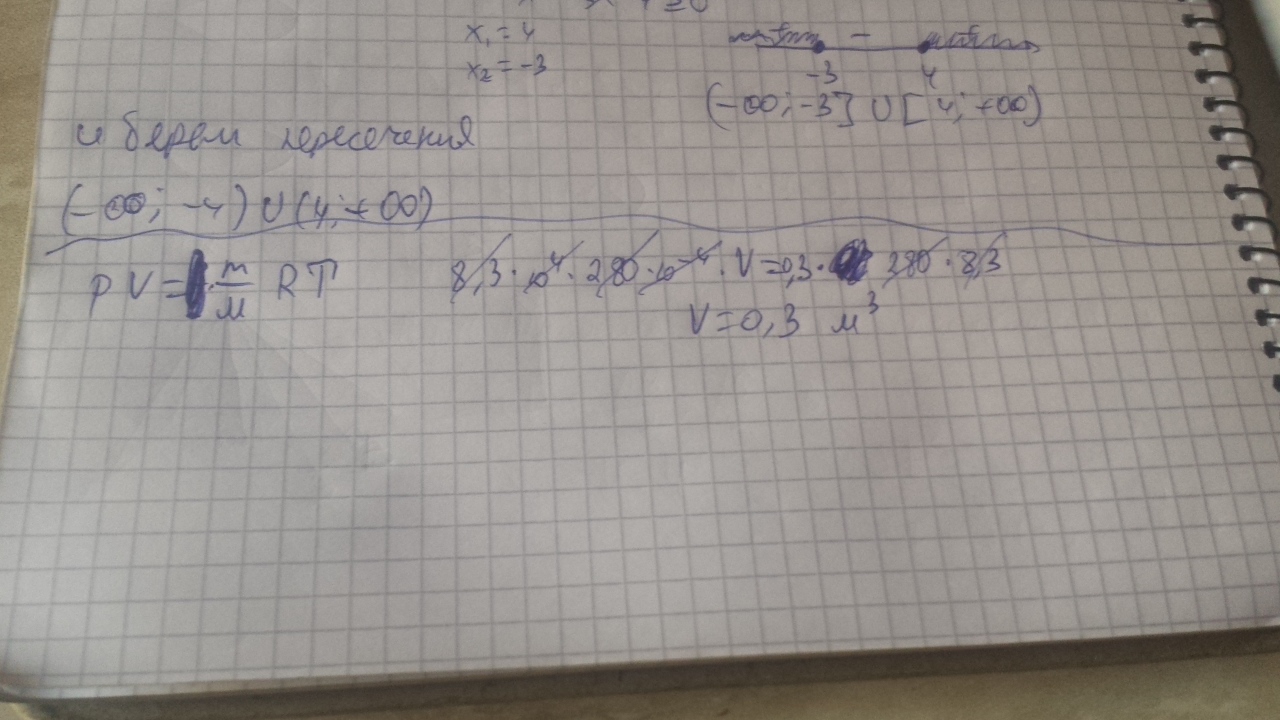 x₁ = 4
x₂ = -3
−
-3 4
(-∞; -3] ∪ [4; +∞)
и берем пересечения
(-∞; -4) ∪ (4; +∞)
pV = m/M RT
8,3 · 10⁴ · 280 · 10⁻⁴ · V = 0,3 · 280 · 8,3
V = 0,3 м³